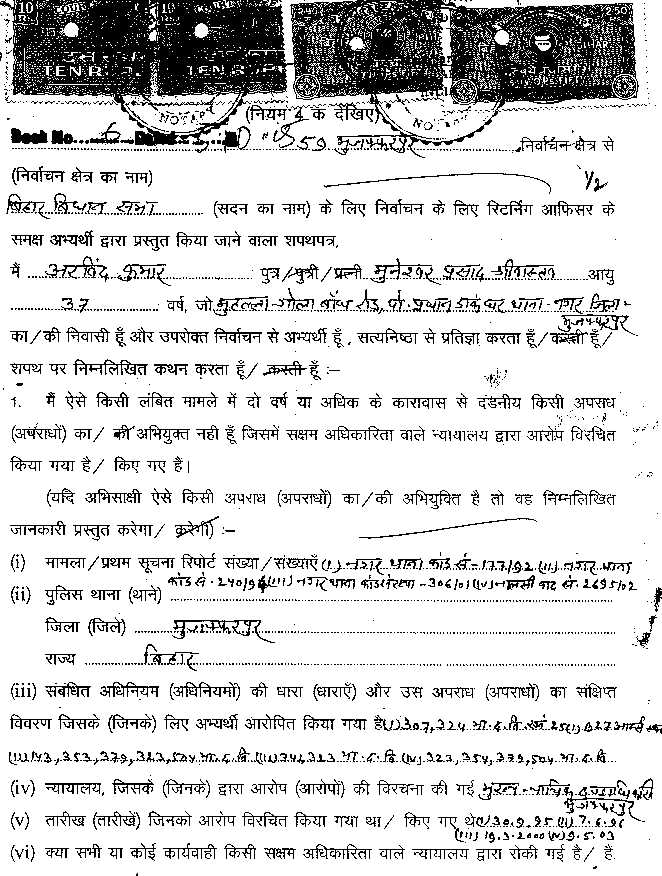 10 COURT
10 COURT
250
TEN R. S.
TEN RUP
NOTARY
NOTARY
(नियम 4 क देखिए)
Book No. 6
50 मुजफ्फरपुर निर्वाचन क्षेत्र से
(निर्वाचन क्षेत्र का नाम) 1/2
बिहार विधान सभा (सदन का नाम) के लिए निर्वाचन के लिए रिटर्निंग आफिसर के
समक्ष अभ्यर्थी द्वारा प्रस्तुत किया जाने वाला शपथपत्र,
मैं अरविंद कुमार पुत्र/पुत्री/पत्नी मुनेश्वर प्रसाद श्रीवास्तव आयु
37 वर्ष, जो मुहल्ला-गोला बाँध रोड, पो. प्रधान डाकघर थाना-नगर जिला-
मुजफ्फरपुर
का/की निवासी हूँ और उपरोक्त निर्वाचन से अभ्यर्थी हूँ, सत्यनिष्ठा से प्रतिज्ञा करता हूँ/करती हूँ/
शपथ पर निम्नलिखित कथन करता हूँ/ करती हूँ :–
1. मैं ऐसे किसी लंबित मामले में दो वर्ष या अधिक के कारावास से दंडनीय किसी अपराध
(अपराधों) का/ की अभियुक्त नही हूँ जिसमें सक्षम अधिकारिता वाले न्यायालय द्वारा आरोप विरचित
किया गया है/ किए गए हैं।
(यदि अभिसाक्षी ऐसे किसी अपराध (अपराधों) का/की अभियुक्ति है तो वह निम्नलिखित
जानकारी प्रस्तुत करेगा/ करेगी) :–
(i) मामला/प्रथम सूचना रिपोर्ट संख्या/संख्याएँ (I) नगर थाना कांड सं-177/92 (II) नगर थाना
कांड सं-240/96 (III) नगर थाना कांड संख्या-306/01 (IV) नालसी वाद सं-2695/02
(ii) पुलिस थाना (थाने)
जिला (जिले) मुजफ्फरपुर
राज्य बिहार
(iii) संबंधित अधिनियम (अधिनियमों) की धारा (धाराएँ) और उस अपराध (अपराधों) का संक्षिप्त
विवरण जिसके (जिनके) लिए अभ्यर्थी आरोपित किया गया है (I) 307, 324 भा.द.वि. एवं 25(1), 27 आर्म्स
(II) 143, 353, 379, 323, 504 भा.द.वि (III) 341, 323 भा.द.वि (IV) 323, 354, 379, 504 भा.द.वि
(iv) न्यायालय, जिसके (जिनके) द्वारा आरोप (आरोपों) की विरचना की गई मुख्य न्यायिक दण्डाधिकारी
मुजफ्फरपुर
(v) तारीख (तारीखें) जिनको आरोप विरचित किया गया था/ किए गए थे (I) 30.9.95 (II) 7.6.96
(III) 19.3.2000 (IV) 9.5.03
(vi) क्या सभी या कोई कार्यवाही किसी सक्षम अधिकारिता वाले न्यायालय द्वारा रोकी गई है/ हैं.